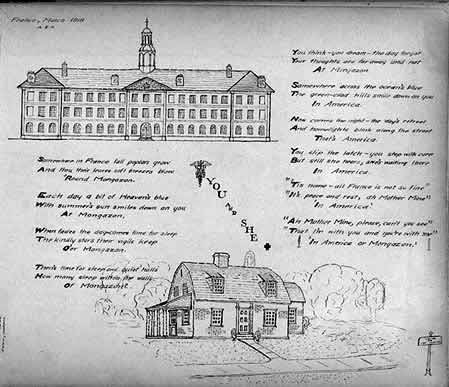 France, March 1918
You think - you dream - the day forget
Your thoughts are far away and not
At Mongazon
Somewhere across the ocean's blue
The green-clad hills smile down on you
In America.
Now comes the night - the day's retreat
And homelights blink along the street
That's America.
You slip the latch - you step with care
But still she hears, she's waiting there
In America.
"Tis home - all France is not so fine"
"It's peace and rest, ah Mother Mine"
In America.
"Ah Mother Mine, please, can't you see"
"That I'm with you and you're with me"
In America or Mongazon.
Somewhere in France tall poplars grow
And thru their leaves soft breezes blow
'Round Mongazon.
Each day a bit of Heaven's blue
With summer's sun smiles down on you
At Mongazon,
When fades the day comes time for sleep
The kindly stars their vigils keep
O'er Mongazon.
There's time for sleep and quiet halls
How many sleep within the walls
Of Mongazon?
YOU AND SHE